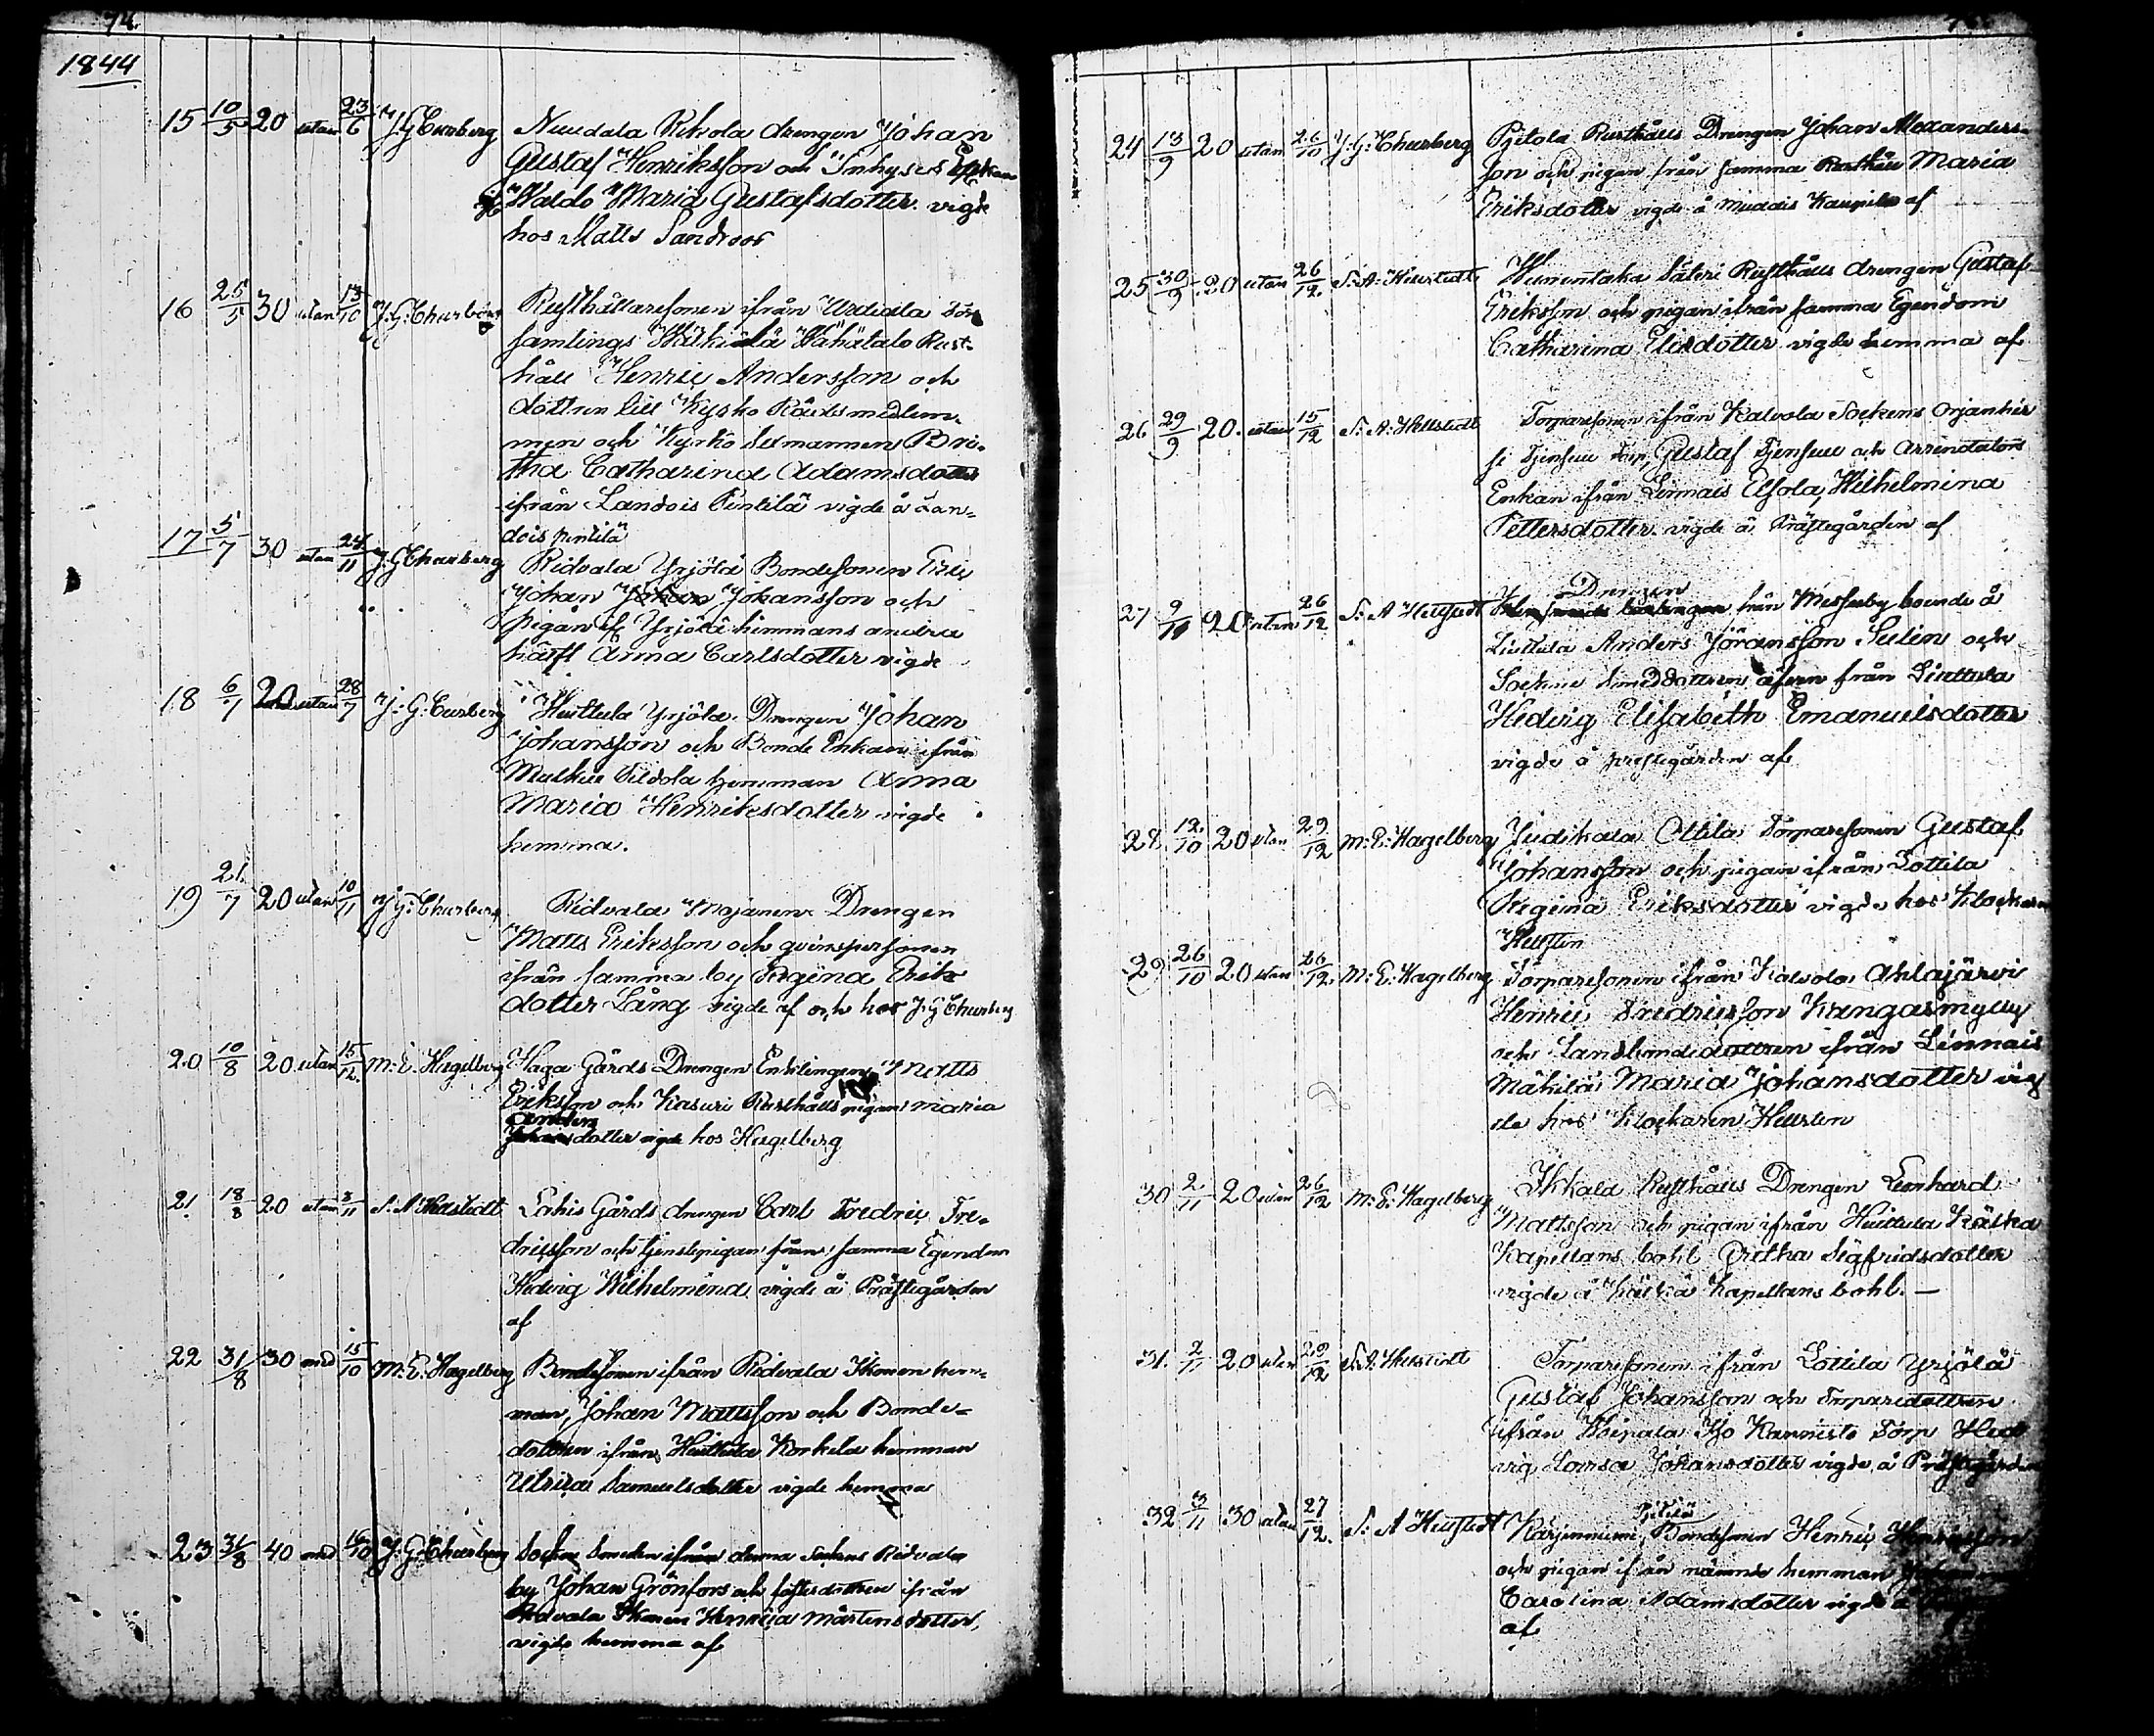 74.
1844
15 10/5 20 utan 23/6 J. G. Curberg Nuudala Rekola drengen Johan
Gustaf Henriksson och Inhyses Enkan
if. Waldo Maria Gustafsdotter vigde
hos Matts Sandroos
16 25/5 30 utan 13/10 J. G. Churberg Rusthållaresonen ifrån Urdiala
samlings Wähätalo Rust-
håll Henric Andersson och
dottren till Kyrko Rådsmedlem-
men och Kyrko Sexmannen Bri-
tha Catharina Adamsdotter
ifrån Landois Pentilä vigde å Lan-
dois pentilä
17 5/7 30 utan 24/11 J. G. Churberg Ridvala Yrjölä Bondesonen Eric
Johan Johansson och
Pigan if. Yrjölä hemmans andra
hälft Anna Carlsdotter vigde
18 6/7 20 utan 28/7 J. G. Curberg Huittula Yrjölä Drengen Johan
Johansson och Bonde Enkan ifrån
hemman Anna
Maria Henriksdotter vigde
hemma.
19 21/7 20 utan 10/11 J. G. Churberg Ridvala Majanen Drengen
Matts Eriksson och qvinspersonen
ifrån samma by Regina Eriks
dotter Lång vigde af och hos J. G. Churberg
20 10/8 20 utan 15/12. M. E. Hagelberg Haga Gårds Drengen Enklingen Matts
Eriksson och Kasuri Rusthålls pigan Maria
Anders
dotter vigde hos Hagelberg
21 18/8 20 utan 3/11 S. A. Hellstedt Lahis Gårds drengen Carl Fredric Fre-
dricsson och tjenstepigan från samma Egendom
Hedvig Wilhelmina vigde å Prästegården
af
22 31/8 30 med 15/10 M. E. Hagelberg Bondesonen ifrån Ridvala Ikonen hem-
man, Johan Mattsson och Bonde-
dottren ifrån Huittula Korkela hemman
Ulrica Samuelsdotter vigde hemma
23 31/8 40 med 16/10 J. G. Churberg Socken Smeden ifrån denna Sockens Ridvala
by Johan Grönfors och dottren ifrån
Ridvala Ikonen Henrica Mårtensdotter,
vigde hemma af
24 13/9 20 utan 26/10 J. G. Churberg Pjetola Rusthålls Drengen Johan Alexanders-
son och pigan från samma Rusthåll Maria
Eriksdotter vigde å Muddis Kaupila af
25 30/9 20 utan 26/12. S. A. Hellstedt Säteri Rusthålls drengen Gustaf
Eriksson och pigan ifrån samma Egendom
Catharina Elisdotter vigde hemma af
26 29/9 20. utan 15/12 S. A. Hellstedt Torparesonen ifrån Kalvola Sockens
Gustaf och Arrendators
Enkan ifrån Linnais Wilhelmina
Pettersdotter vigde å Prästegården af
27 9/10 20 utan 26/12 S. A. Hellstedt Drengen från Messuby boende å
Anders Jöransson Sulin och
Socken Smeddottren äfven från
Hedvig Elisabeth Emanuelsdotter
vigde å prestegården af
28 12/10 20 utan 29/12 M. E. Hagelberg Judikala Ottila Torparesonen Gustaf
Johansson och pigan ifrån Lottila
Regina Eriksdotter vigde hos Klockaren
Hellsten
29 26/10 20 utan 26/12. M. E. Hagelberg Torparesonen ifrån Kalvola Ahlajärvi
Henric Fredricsson Kangasmylly
och Landbondedottren ifrån Linnais
Mäkilä Maria Johansdotter vig
de hos Klockaren Hellsten
30 2/11 20 utan 26/12 M. E. Hagelberg Ikkala Rusthålls Drengen Leonhard
Mattsson och pigan ifrån Huittula Kätkä
Kapellans bohl Britha Sigfridsdotter
vigde å Kätkä Kapellans bohl. —
31. 2/11 20 utan 29/12 S. A. Hellstedt Torparesonen ifrån Lottila Yrjölä
Gustaf Johansson och Torparedottren
ifrån Iso Kannisto Torp Hed
vig Lovisa Johansdotter vigde å Prästegården
32 3/11 30 utan 27/12. S. A. Hellstedt Kärjenniemi Bondesonen Henric
och pigan ifrån nämnde hemman
Carolina Adamsdotter vigde å
af